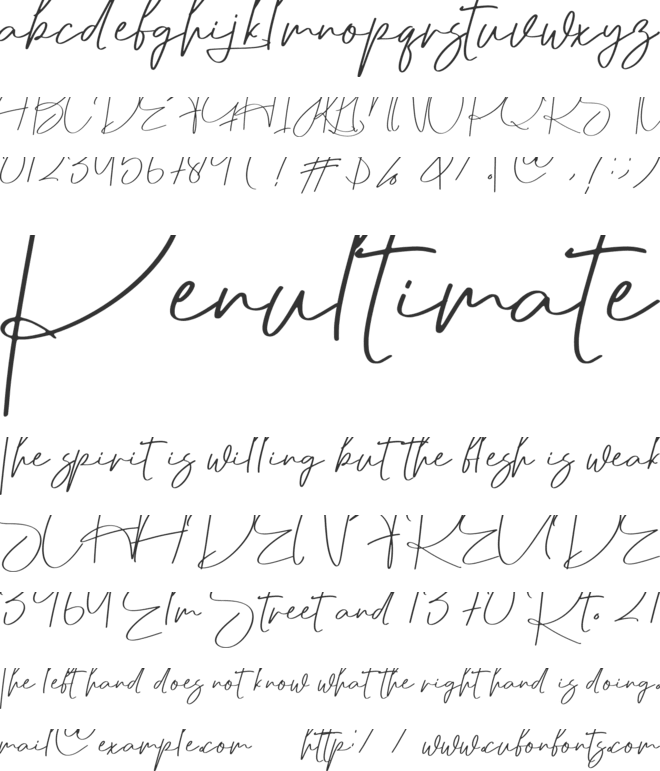 abcdefghijklmnopqrstuvwxyz
ABCDEFGHIJKLMNOPQRS
0123456789(!#$%&/.|@,!:;)
Penultimate
The spirit is willing but the flesh is weak
SCHADEN FREUDE
3964 Elm Street and 1370 Rt. 21
The left hand does not know what the right hand is doing.
mail@example.com http:// www.cufonfonts.com